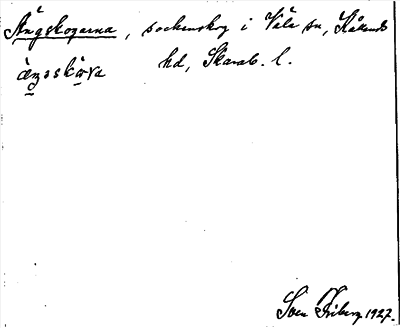 Ängskogarna, sockenskog i Våla sn, Kåkinds
hd, Skarab. l.
Sven Friberg 1927.